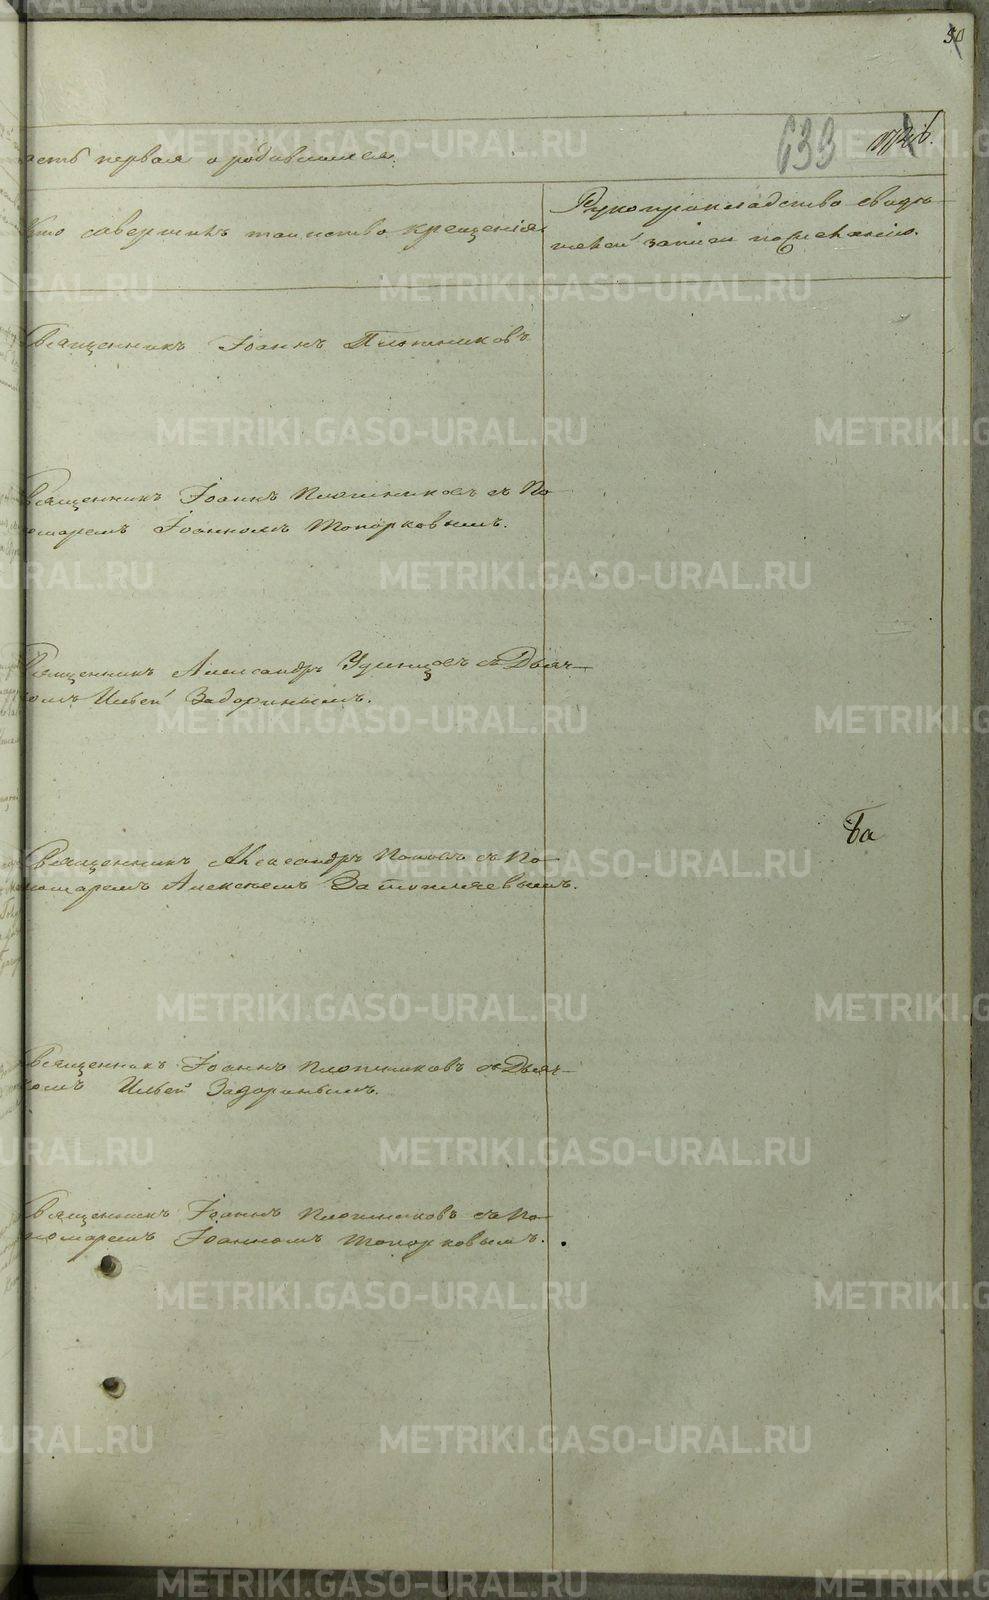 50
633
асть первая о родившихся.
Кто совершилъ таинство крещенія
Рукоприкладство свидѣ-
телей записи по желанію.
Священникъ Іоаннъ Плотниковъ
Священникъ Іоаннъ Плотниковъ съ По-
номаремъ Іоанномъ Топорковымъ.
Священникъ Александръ Удинцовъ съ Дьяч-
комъ Ильей Задоринымъ.
Священникъ Александръ Поповъ съ По-
номаремъ Алексѣемъ Затопляевымъ.
Священникъ Іоаннъ Плотниковъ съ Дьяч-
комъ Ильей Задоринымъ.
Священникъ Іоаннъ Плотниковъ съ По-
номаремъ Іоанномъ Топорковымъ.
METRIKI.GASO-URAL.RU